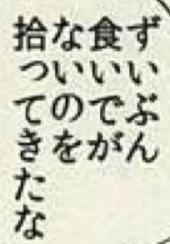 ずいぶん
食いでが
ないのを
拾ってきたな